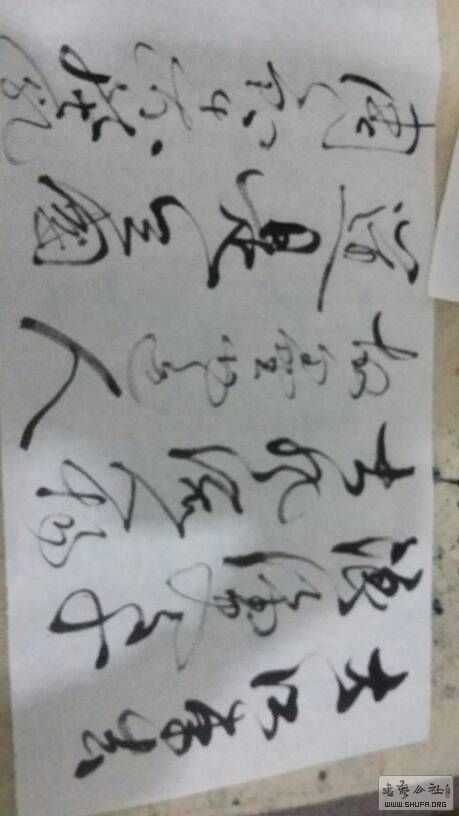 大江东去
浪淘尽千
古风流人物
故垒西边人
道是三國
周郎赤壁乱
书艺公社
WWW.SHUFA.ORG